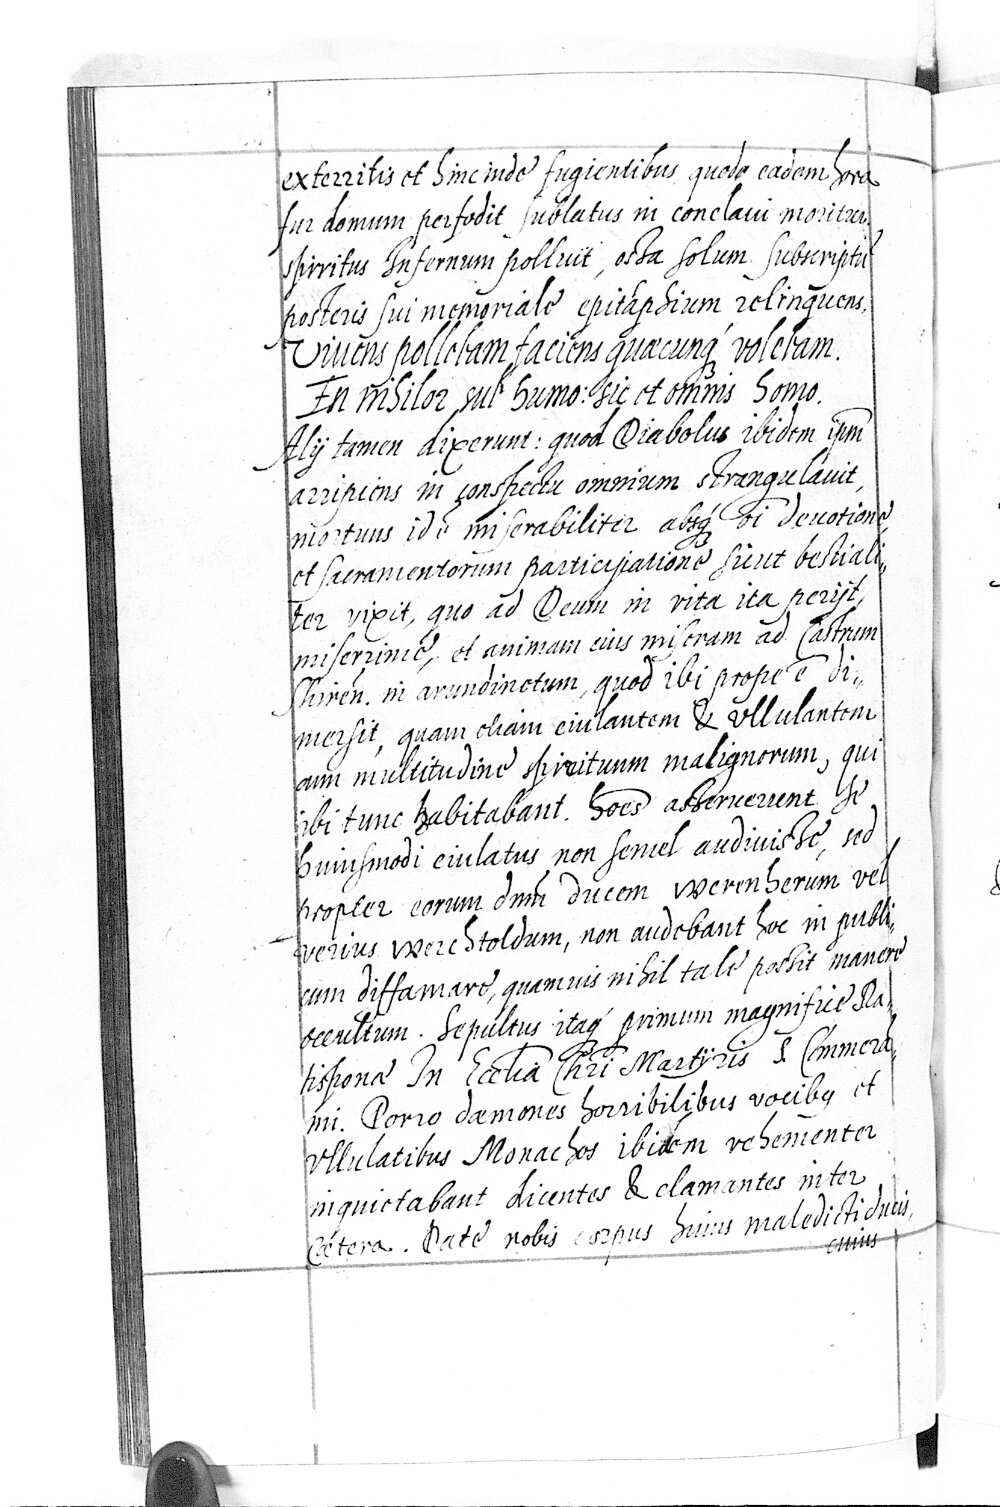 exterritis et hinc inde fugientibus, qualo eadem hora
fur domum perfodit sublatus in conclaui moritur.
spiritus Infernum polluit, ossa solum subscriptū
posteris sui memoriale epitaphium relinquens,
Viuens pollebam faciens quæcunq́ȝ volebam.
In nihilor sub humo: sic et omnis homo.
Alij tamen dixerunt: quod Diabolus ibidem ip̄m
arripiens in conspectu omnium strangulauit,
mortuus idē miserabiliter absq́ȝ oī deuotione,
et sacramentorum participatione sicut bestiali„
ter vixit, quo ad Deum in vita ita perijt,
miserrimè, et animam eius miseram ad Castrum
Shiren. in arundinetum, quod ibi prope ē di„
mersit, quam etiam eiulantem & vllulantem
cum multitudine spirituum malignorum, qui
ibi tunc habitabant. hoēs asseruerunt se
huiusmodi eiulatus non semel audiuisse, sed
propter eorum dnm̄ ducem werenherum vel
verius werchtoldum, non audebant hoc in publi„
cum diffamare, quamuis nihil tale possit manere
occultum. Sepultus itaq́ȝ primum magnifice Ra„
tisponæ In Ecclīa Chrī Martyris S. Em̄mera„
mi. Porro dæmones horribilibus vocibȝ et
vllulatibus Monachos ibidem vehementer
inquietabant dicentes & clamantes inter
Cætera. Date nobis corpus huius maledicti ducis,
cuius